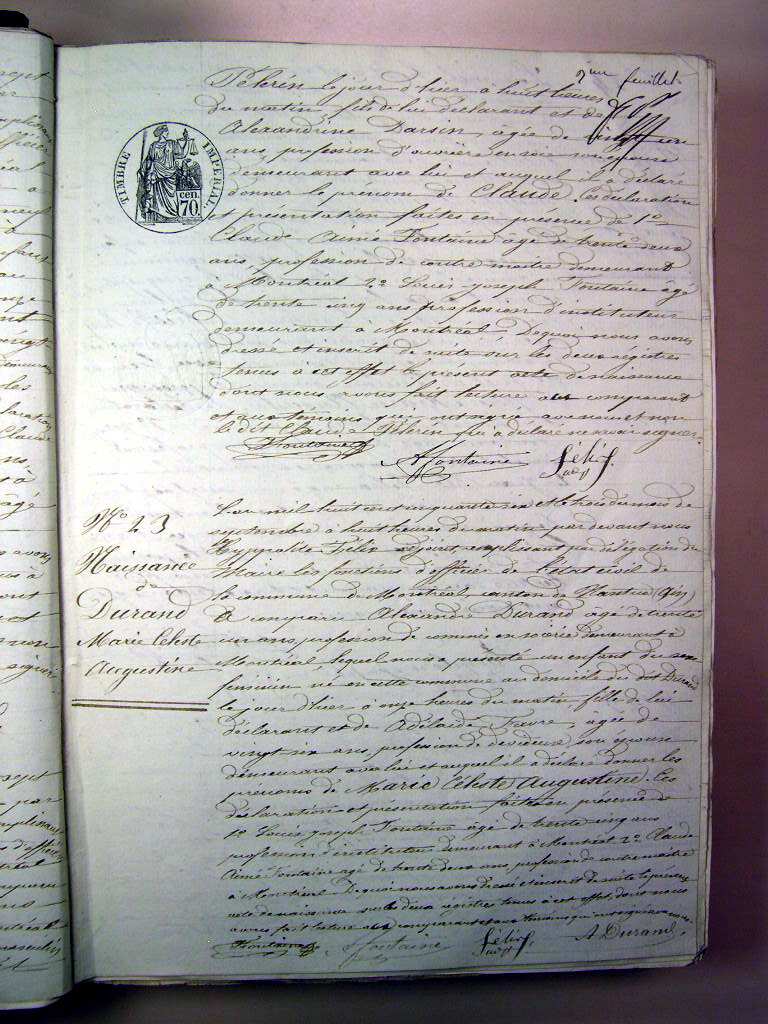 9me feuillet
Péhrin le jour d'hier à huit heures
du matin fils de lui déclarant et de
Alexandrine Darsin, agée de vingt un
ans profession d'ouvrière en soie son épouse
demeurant avec lui et auquel il a déclaré
donner le prénom de Claude, Les déclaration
et présentation faites en présence de 1o
Claude Aimé Fontaine âgé de trente deux
ans, profession de contre maitre demeurant
à Montréal 2o Louis Joseph Fontaine âgé
de trente cinq ans profession d'instituteur
demeurant à Montréal, De quoi nous avons
dressé et inscrit de suite sur les deux registres
tenus à cet effet le présent acte de naissance
dont nous avons fait lecture au comparant
et aux témoins qui ont signé avec nous et non
le dit Claude Péhrin qui a déclaré ne savoir signer.
Fontaine
A Fontaine
félix
adjt
TIMBRE IMPERIAL
70 cen.
No 23
Naissance
de
Durand
Marie Céleste
Augustine
L'an mil huit cent cinquante six et le trois du mois de
septembre à huit heures du matin par devant nous
Hyppolite Félix adjoint remplissant par délégation du
Maire les fonctions d'officier de l'état civil de
la commune de Montréal, canton de Nantua (Ain)
A comparu Alexandre Durand âgé de trente
un ans, profession de commis en soierie demeurant à
Montréal lequel nous a présenté un enfant du sexe
féminin né en cette commune au domicile du dit Durand
le jour d'hier à onze heures du matin, fille de lui
déclarant et de Adélaïde Fèvre, agée de
vingt six ans, profession de dévideuse, son épouse
demeurant avec lui et auquel il a déclaré donner les
prénoms de Marie Céleste Augustine. Les
déclaration et présentation faites en présence de
1o Louis Joseph Fontaine âgé de trente cinq ans
profession d'instituteur demeurant à Montréal 2o Claude
Aimé Fontaine agé de trente deux ans, profession de contre maitre
à Montréal De quoi nous avons dressé et inscrit de suite le présent
acte de naissance sur les deux régistres tenus à cet effet, dont nous
avons fait lecture au comparant et aux témoins qui ont signé avec nous.
Fontaine
A Fontaine
félix
adjt
A Durand